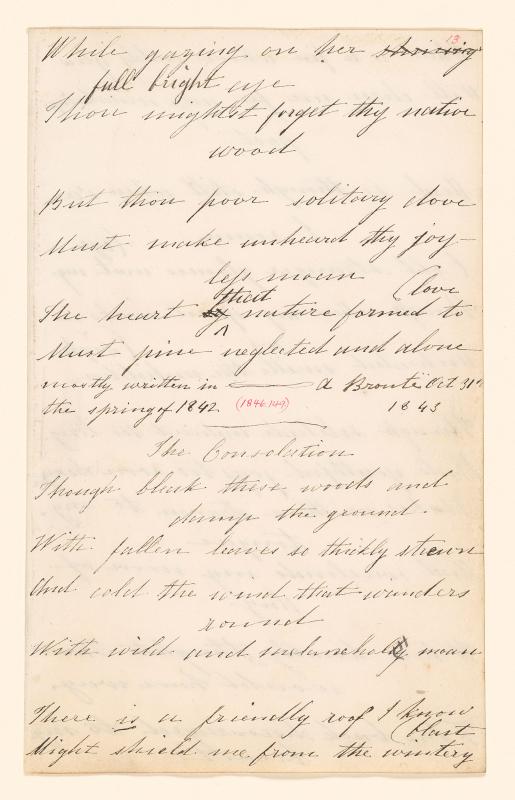 13
While gazing on her shining
full bright eye
Thou mightst forget thy native
wood
But thou poor solitary dove
Must make unheard thy joy-
less moan
that (love
The heart nature formed to
Must pine neglected and alone
mostly written in A Brontë Oct 31st
the spring of 1842 (1846.149) 1843
The Consolation
Though bleak these woods and
damp the ground.
With fallen leaves so thickly strewn
And cold the wind that wanders
round
With wild and melancholy moan
There is a friendly roof I know
(blast
Might shield me from the wintery